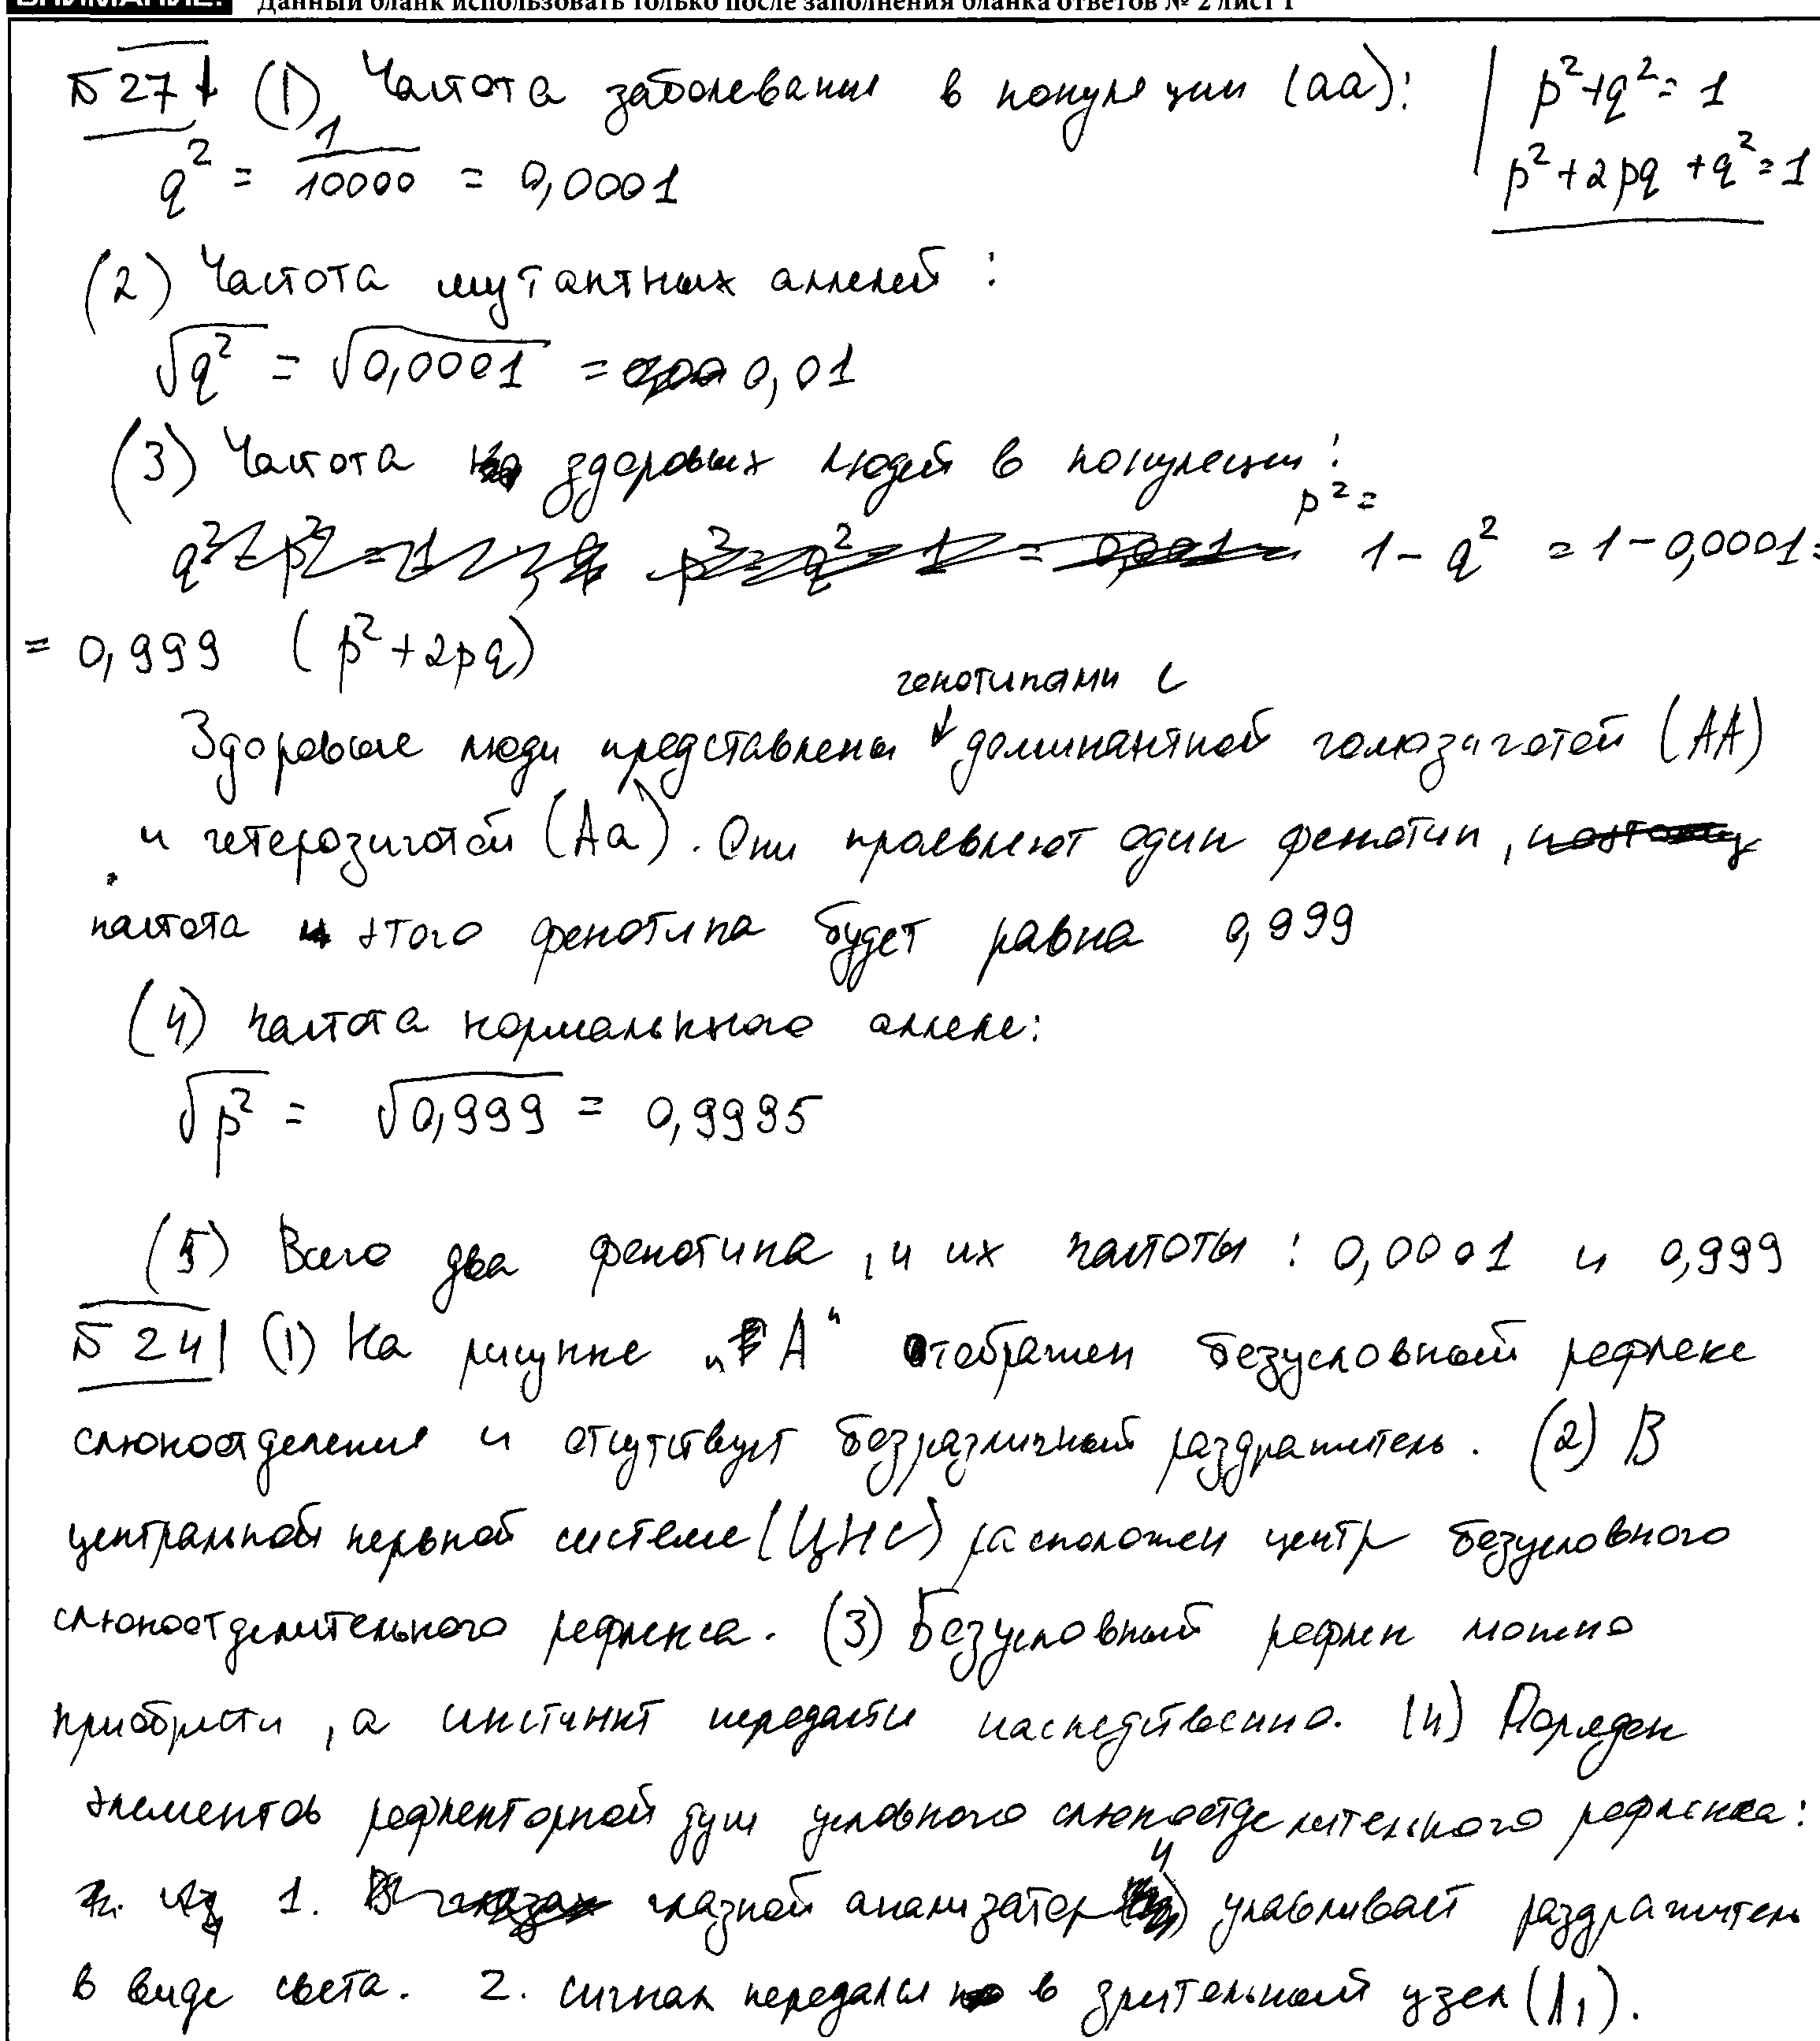 ВНИМАНИЕ! Данный бланк использовать только после заполнения бланка ответов № 2 лист 1
№27 (1) Частота заболевания в популяции (аа): p²+q²=1
q² = 1/10000 = 0,0001 p²+2pq+q²=1
(2) Частота мутантных аллелей:
√q² = √0,0001 = 0,01
(3) Частота здоровых людей в популяции:
p² = 1-q² = 1-0,0001=
= 0,999 (p²+2pq)
генотипами с
Здоровые люди представлены доминантной гомозиготой (АА)
и гетерозиготой (Аа). Они проявляют один фенотип,
частота этого фенотипа будет равна 0,999
(4) частота нормального аллеля:
√p² = √0,999 = 0,9995
(5) Всего два фенотипа, и их частоты: 0,0001 и 0,999
№24 (1) На рисунке „А“ отображен безусловный рефлекс
слюноотделения и отсутствует безразличный раздражитель. (2) В
центральной нервной системе (ЦНС) расположен центр безусловного
слюноотделительного рефлекса. (3) Безусловный рефлек можно
приобрести, а инстинкт передается наследственно. (4) Порядок
элементов рефлекторной дуги условного слюноотделительного рефлекса:
1. глазной анализатор 4 улавливает раздражитель
в виде света. 2. сигнал передался в зрительный узел (Л₁).